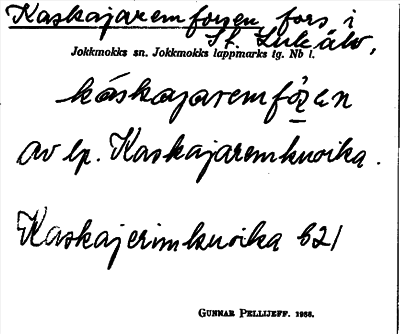 Kaskajaremforsen, fors i
St. Luleälv,
Jokkmokks sn. Jokkmokks lappmarks tg. Nb l.
káskajaremfȯʀ̱en
av lp. Kaskajaremkuoika.
Kaskajerimkuoika 621
GUNNAR PELLIJEFF. 1956.